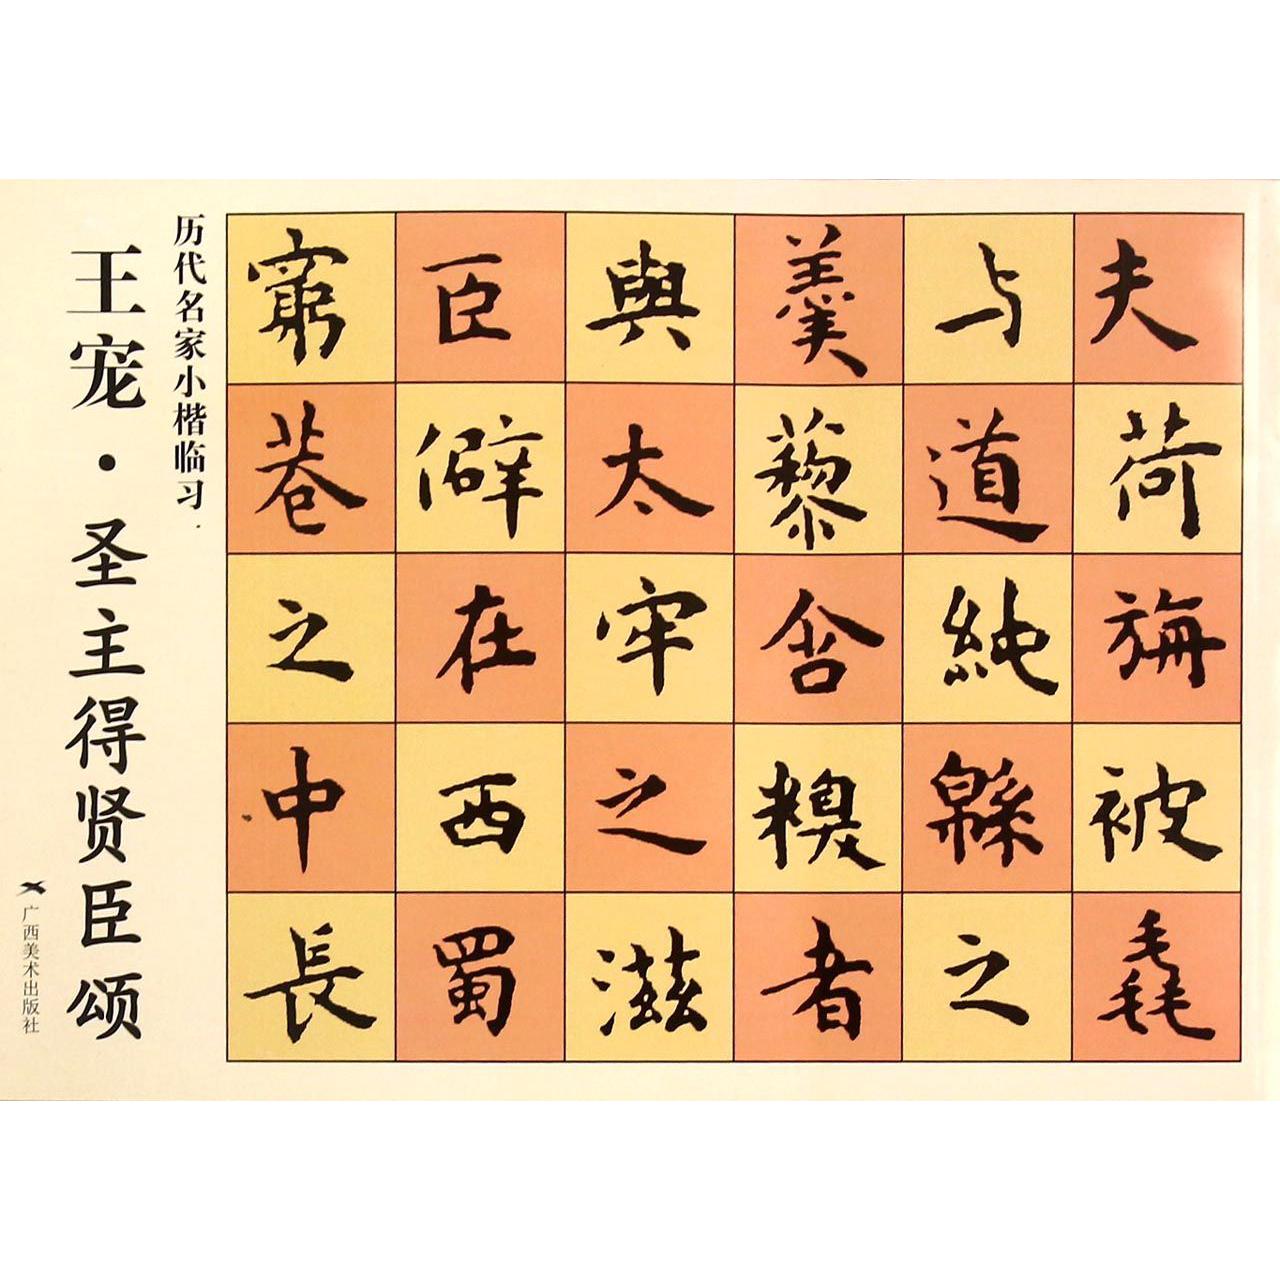 夫荷旃被毳
与道純緜之
羹藜含糗者
與太牢之滋
臣僻在西蜀
窮巷之中長
历代名家小楷临习·
王宠·圣主得贤臣颂
广西美术出版社